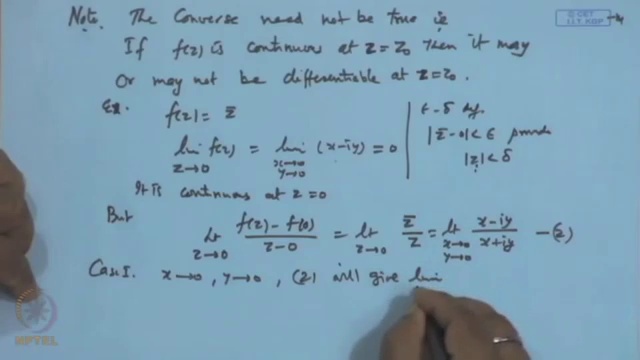 Note. The Converse need not be true ie
If f(z) is continuous at z=z₀ then it may
Or may not be differentiable at z=z₀.
Ex. f(z) = z̄
lim z→0 f(z) = lim x→0 y→0 (x-iy) = 0
ε-δ def.
|z̄-0|<ε provide
|z|<δ
It is continuous at z=0
But lt z→0 f(z)-f(0)/z-0 = lt z→0 z̄/z = lt x→0 y→0 x-iy/x+iy —(2)
Case I. x→0, y→0, (2) will give lim
© CET
I.I.T. KGP
NPTEL